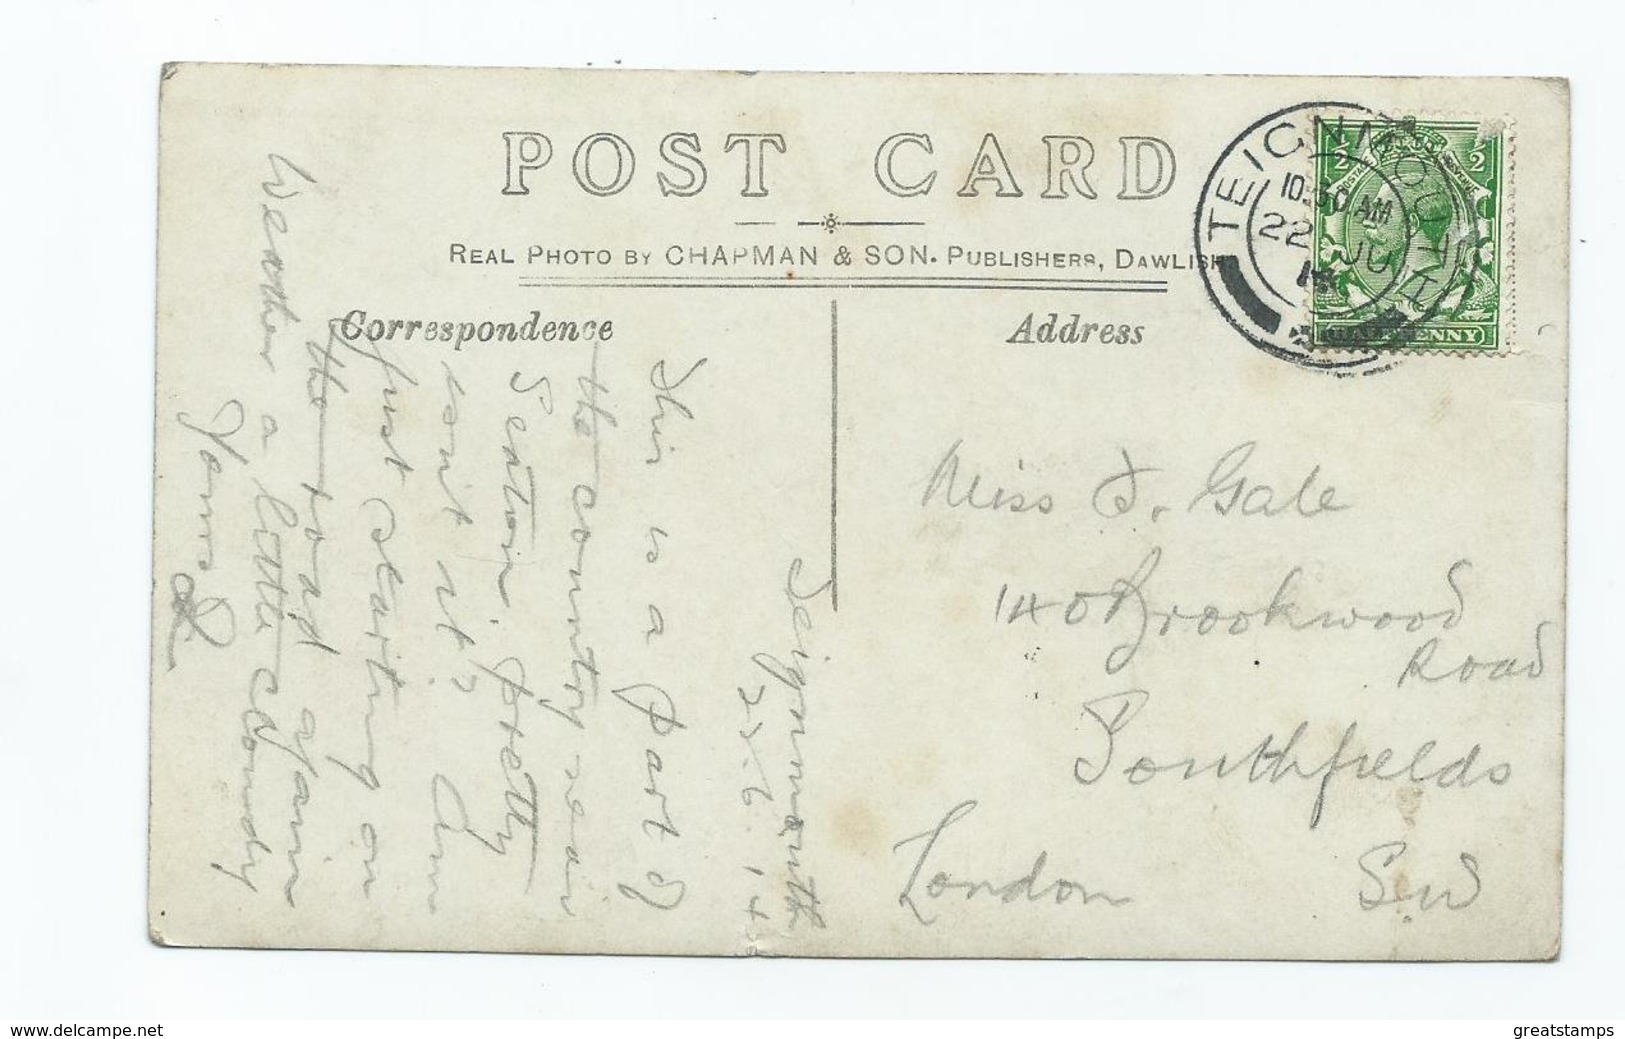 POST CARD
REAL PHOTO BY CHAPMAN & SON. PUBLISHERS, DAWLISH
Correspondence
Address
TEIGNMOUTH
10.30 AM
22 JU
14
1/2 1/2
POSTAGE REVENUE
PENNY
Teignmouth
22.6.14
This is a part of
the country near
Seaton. pretty
isn't it? Am
just starting on
the road again
Weather a little cloudy
Yours
Miss J. Gale
140 Brookwood
Road
Southfields
London S.W
www.delcampe.net
greatstamps